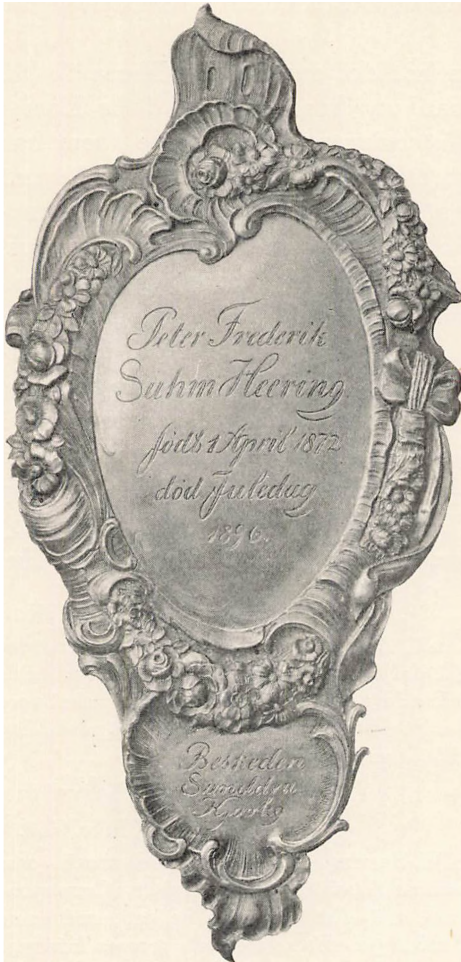 Peter Frederik
Suhm Heering
født 1 April 1872
død Juledag
1896.
Beskeden